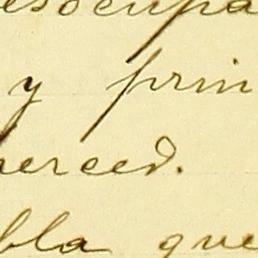 esocupa
y prin
erced.
bla que